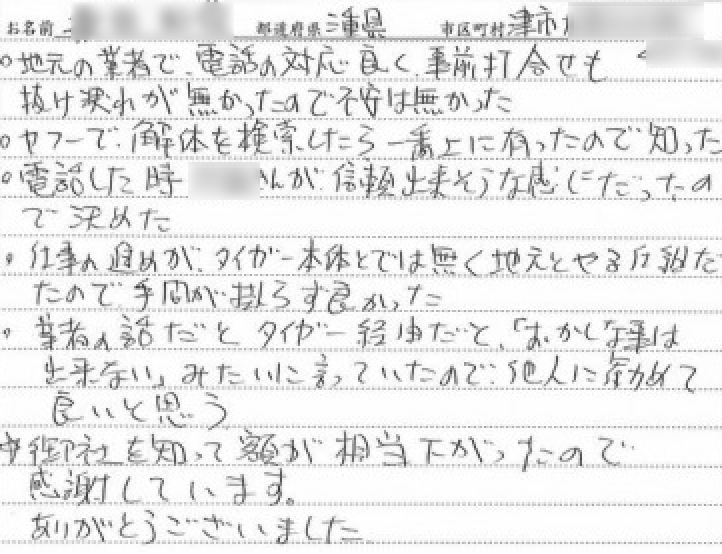 お名前 都道府県 三重県 市区町村 津市
○地元の業者で、電話の対応良く、事前打合せも
抜け漏れが無かったので不安は無かった
○ヤフーで、解体を検索したら一番上に有ったので知った
○電話した時 さんが、信頼出来そうな感じだったの
で決めた
・仕事の進めが、タイガー本体とでは無く地元とやる仕組だっ
たので、手間が掛らず良かった
・業者の話だとタイガー経由だと、「おかしな事は
出来ない」みたいに言っていたので、他人に勧めて
良いと思う
御社を知って額が相当下がったので
感謝しています。
ありがとうございました